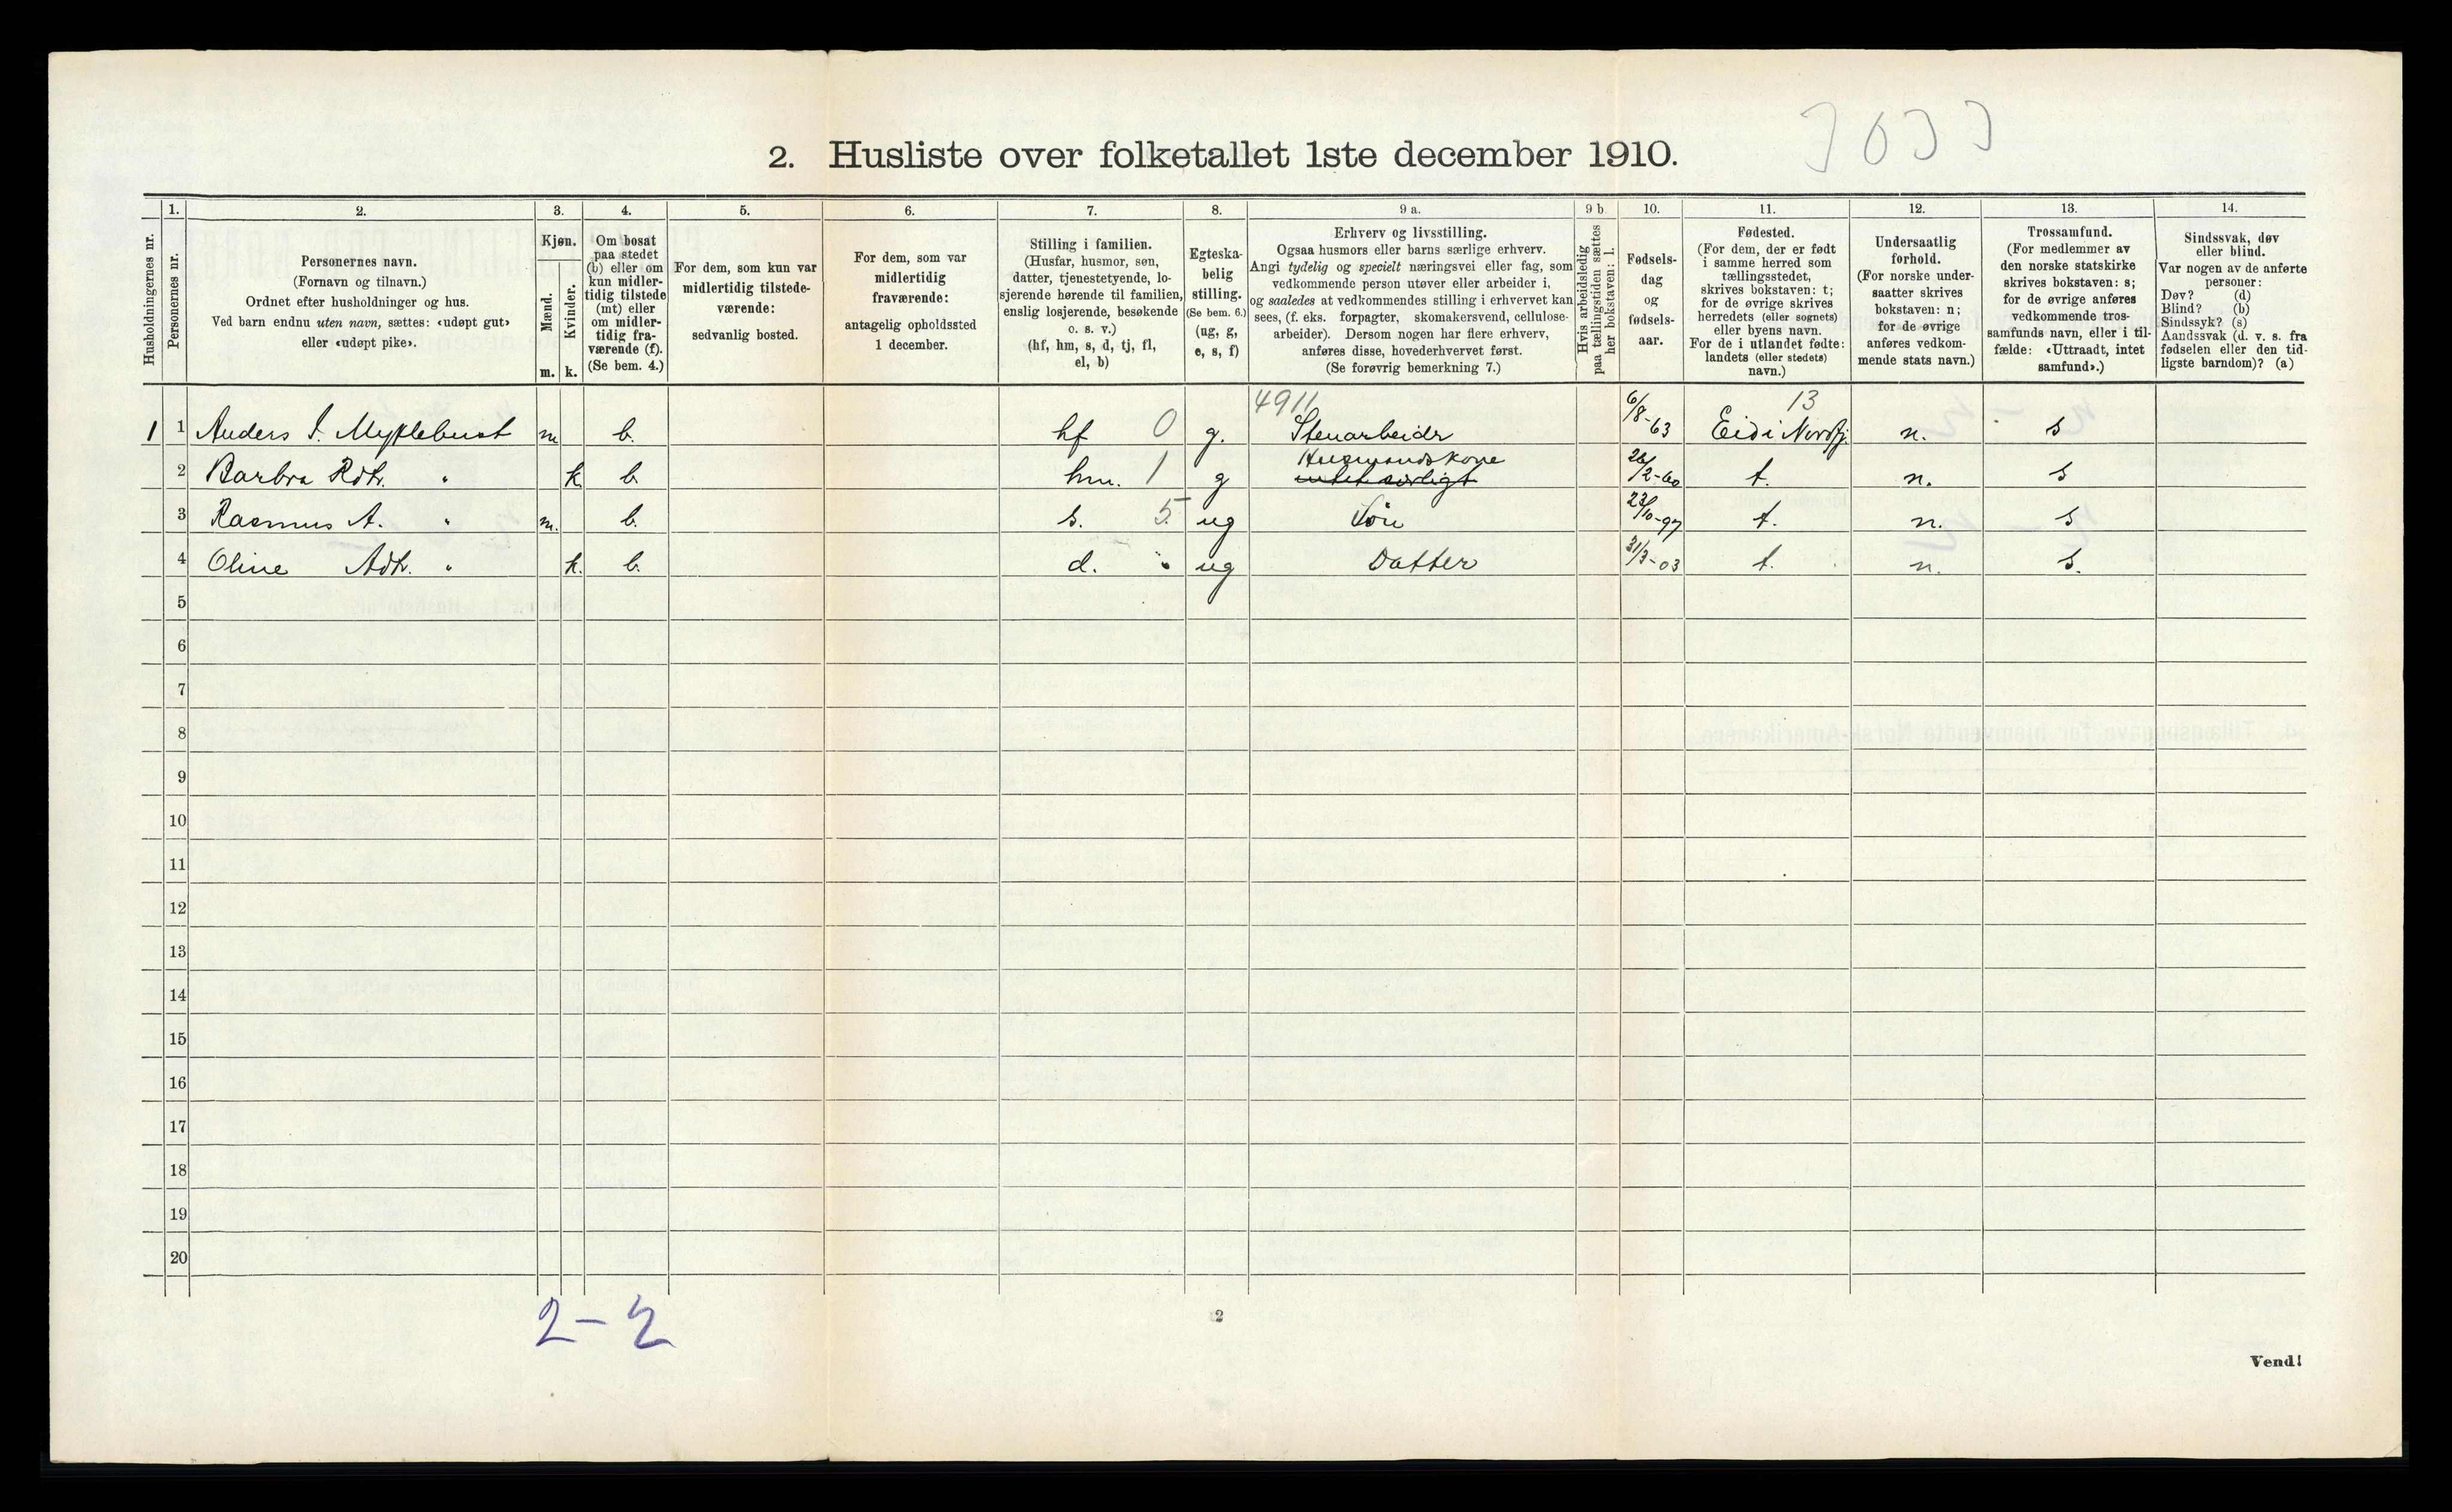 2. Husliste over folketallet 1ste december 1910.
Husholdningernes nr.
1. Personernes nr.
2. Personernes navn. (Fornavn og tilnavn.) Ordnet efter husholdninger og hus. Ved barn endnu uten navn, sættes: «udøpt gut» eller «udøpt pike».
3. Kjøn. Mænd. m. Kvinder. k.
4. Om bosat paa stedet (b) eller om kun midlertidig tilstede (mt) eller om midlertidig fraværende (f). (Se bem. 4.)
5. For dem, som kun var midlertidig tilstedeværende: sedvanlig bosted.
6. For dem, som var midlertidig fraværende: antagelig opholdssted 1 december.
7. Stilling i familien. (Husfar, husmor, søn, datter, tjenestetyende, losjerende hørende til familien, enslig losjerende, besøkende o. s. v.) (hf, hm, s, d, tj, fl, el, b)
8. Egteskabelig stilling. (Se bem. 6.) (ug, g, e, s, f)
9 a. Erhverv og livsstilling. Ogsaa husmors eller barns særlige erhverv. Angi tydelig og specielt næringsvei eller fag, som vedkommende person utøver eller arbeider i, og saaledes at vedkommendes stilling i erhvervet kan sees, (f. eks. forpagter, skomakersvend, cellulosearbeider). Dersom nogen har flere erhverv, anføres disse, hovederhvervet først. (Se forøvrig bemerkning 7.)
9 b Hvis arbeidsledig paa tællingstiden sættes her bokstaven: l.
10. Fødselsdag og fødselsaar.
11. Fødested. (For dem, der er født i samme herred som tællingsstedet, skrives bokstaven: t; for de øvrige skrives herredets (eller sognets) eller byens navn. For de i utlandet fødte: landets (eller stedets) navn.)
12. Undersaatlig forhold. (For norske undersaatter skrives bokstaven: n; for de øvrige anføres vedkommende stats navn.)
13. Trossamfund. (For medlemmer av den norske statskirke skrives bokstaven: s; for de øvrige anføres vedkommende trossamfunds navn, eller i tilfælde: «Uttraadt, intet samfund».)
14. Sindssvak, døv eller blind. Var nogen av de anførte personer: Døv? (d) Blind? (b) Sindssyk? (s) Aandssvak (d. v. s. fra fødselen eller den tidligste barndom)? (a)
4911 13
1 1 Anders I. Myklebust m b. hf 0 g. Stenarbeidr 6/8-63 Eid i Nordfj. n. s
Husmandskone
2 Barbra Rdtr. " k b. hm. 1 g intet særligt 26/2-60 t. n. s
3 Rasmus A. " m. b. s. 5 ug Sön 23/10-97 t. n. s
4 Oline Adtr. " k. b. d. " ug Datter 31/3-03 t. n. s.
5
6
7
8
9
10
11
12
13
14
15
16
17
18
19
20
2-2
2
Vend!